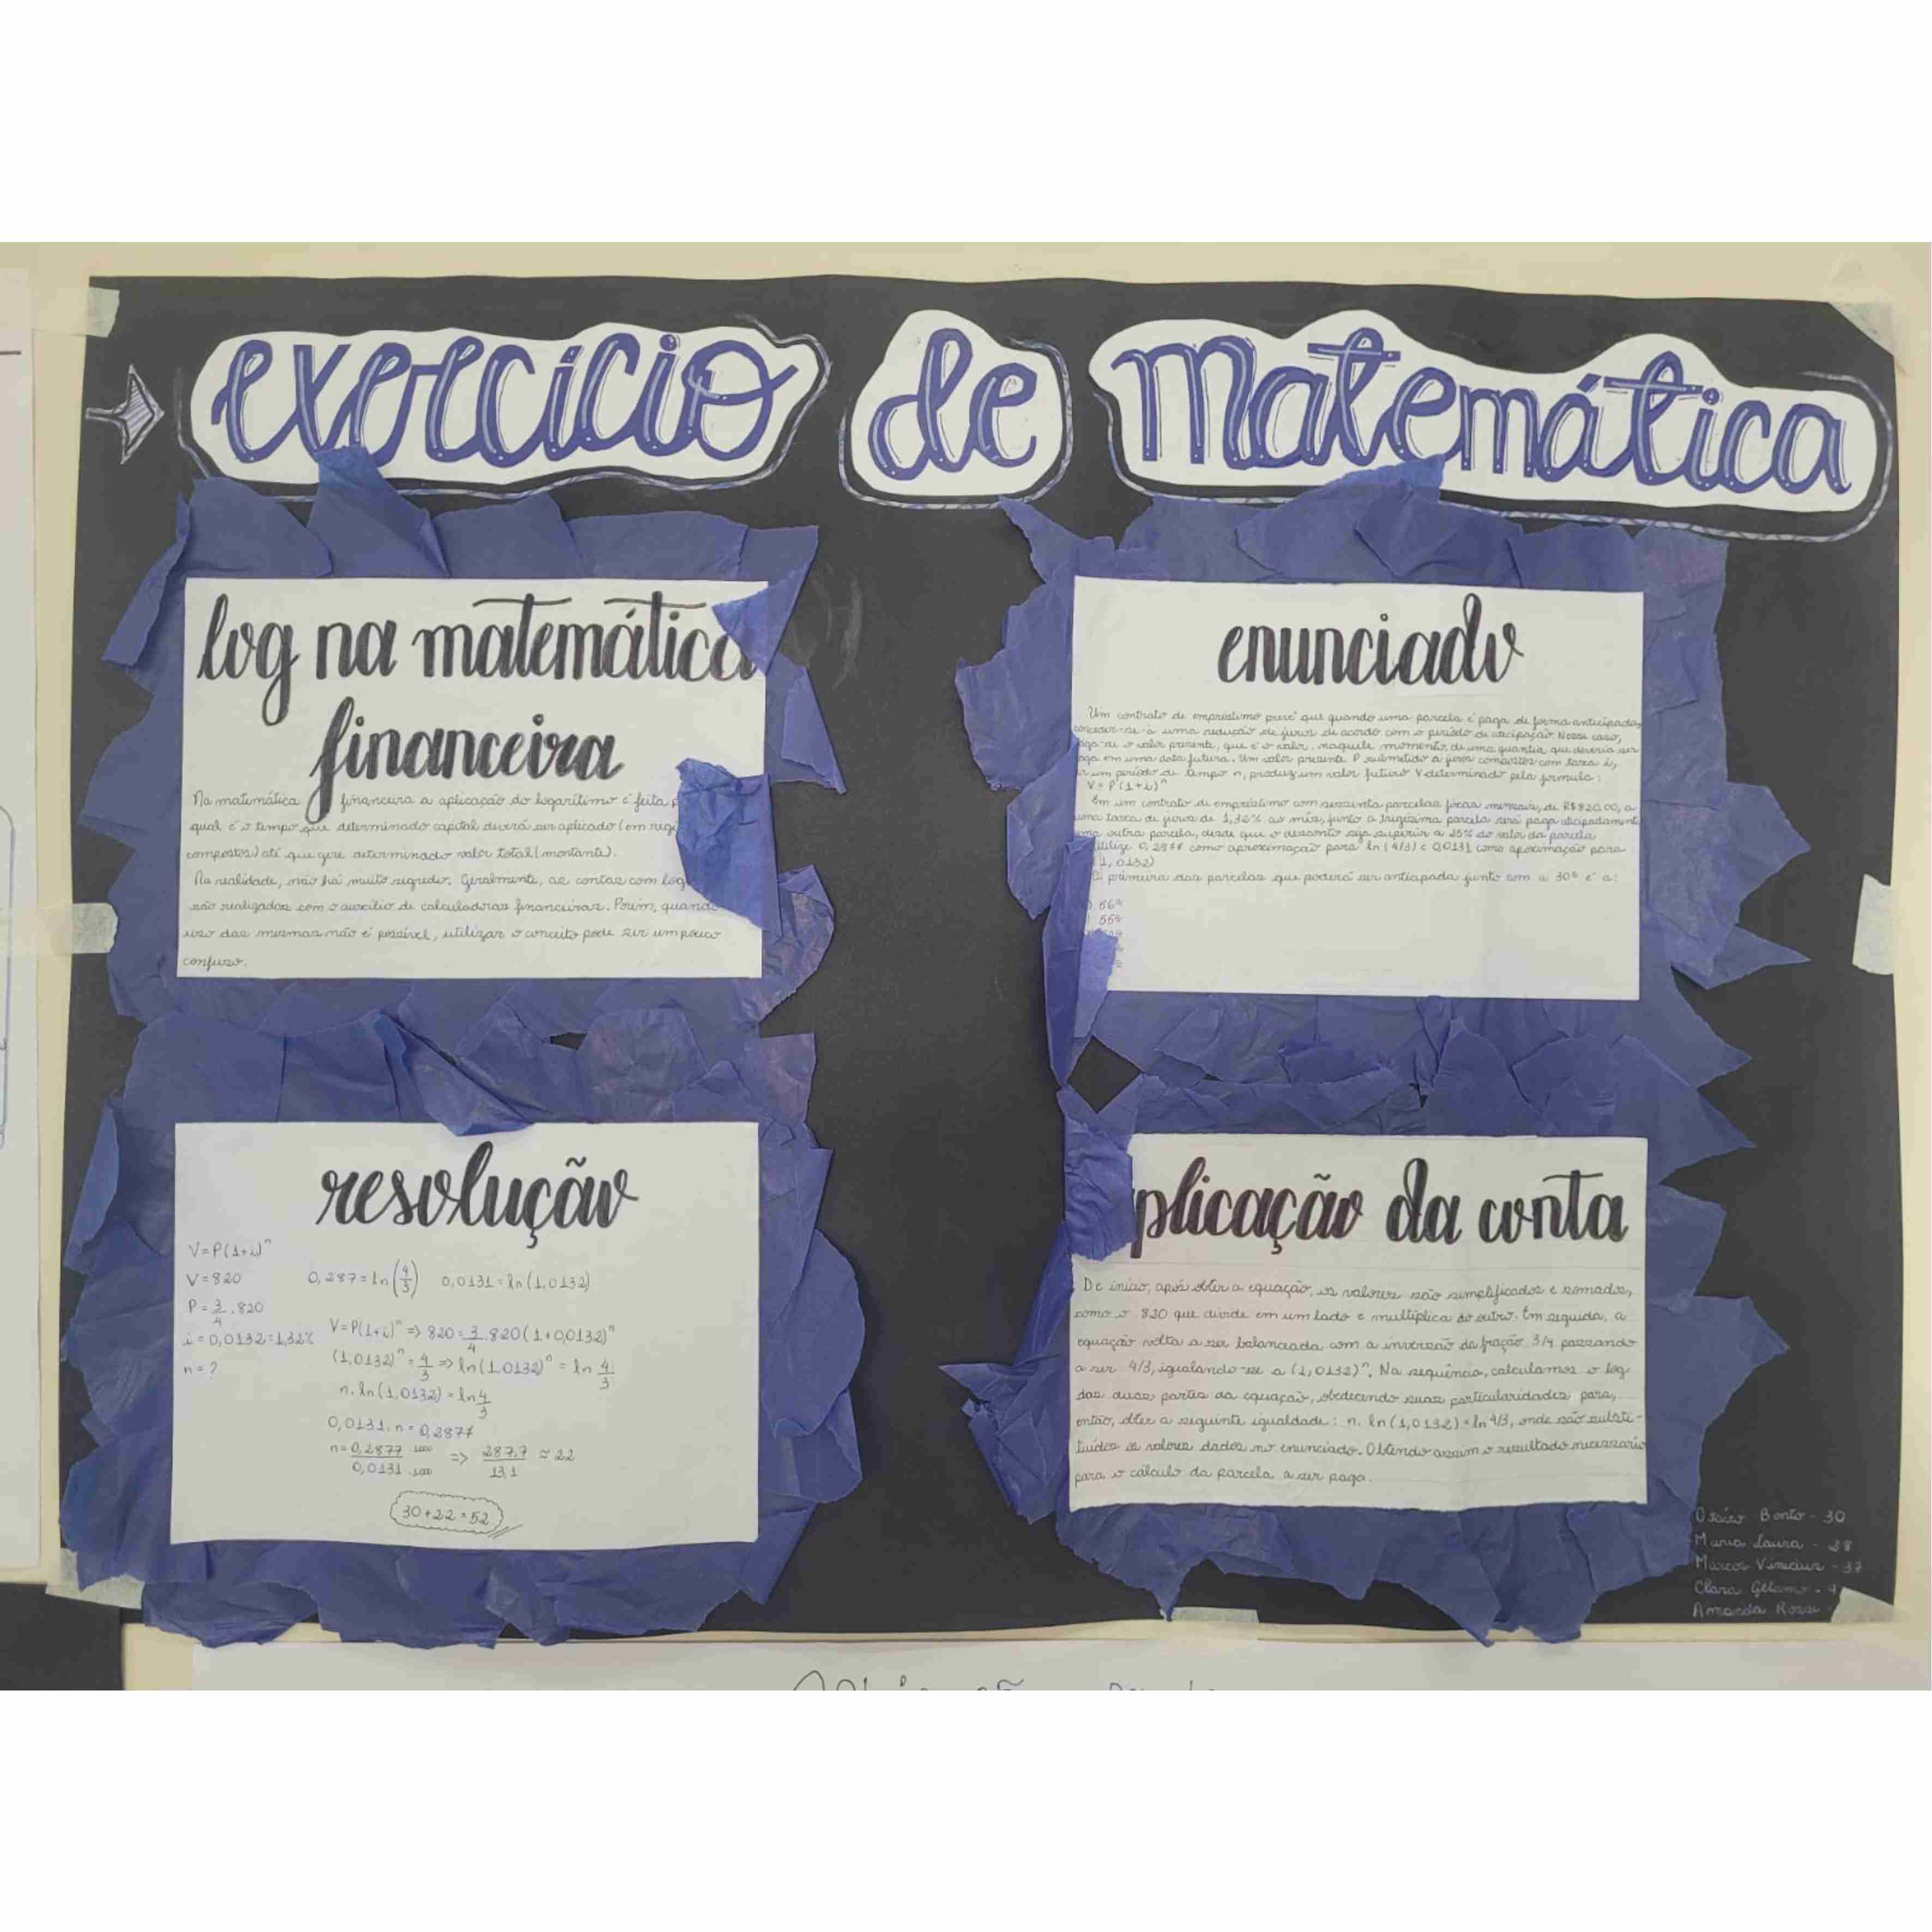 exercício de Matemática
log na matemática
financeira
Na matemática financeira a aplicação do logarítimo é feita
qual é o tempo que determinado capital deverá ser aplicado (em regi
compostos) até que gere determinado valor total (montante).
Na realidade, não há muito segredo. Geralmente, as contas com log
são realizadas com o auxílio de calculadoras financeiras. Porém, quando
uso das mesmas não é possível, utilizar o conceito pode ser um pouco
confuso.
enunciado
Um contrato de empréstimo prevê que quando uma parcela é paga de forma antecipada,
conceder-se-á uma redução de juros de acordo com o período de antecipação. Nesse caso,
paga-se o valor presente, que é o valor, naquele momento, de uma quantia que deveria ser
paga em uma data futura. Um valor presente P submetido a juros compostos com taxa i,
por um período de tempo n, produz um valor futuro V determinado pela formula:
V = P(1+i)ⁿ
Em um contrato de empréstimo com sessenta parcelas fixas mensais, de R$820,00, a
uma taxa de juros de 1,32% ao mês, junto a trigésima parcela será paga
uma outra parcela, desde que o desconto seja superior a 25% do valor da parcela
utilize 0,2877 como aproximação para ln (4/3) e 0,0131 como aproximação para
(1, 0132)
A primeira das parcelas que poderá ser antecipada junto com a 30ª é a:
56ª
55ª
resolução
V=P(1+i)ⁿ
V=820
P=3/4 .820
i=0,0132=1,32%
n=?
0,287=ln(4/3) 0,0131=ln(1,0132)
V=P(1+i)ⁿ => 820=3/4 .820(1+0,0132)ⁿ
(1,0132)ⁿ=4/3 => ln(1,0132)ⁿ = ln 4/3
n.ln(1,0132)=ln 4/3
0,0131.n=0,2877
n=0,2877/0,0131 => 287,7/13,1 ≈ 22
30+22=52
plicação da conta
De início, após obter a equação, os valores são simplificados e somados,
como o 820 que divide em um lado e multiplica do outro. Em seguida, a
equação volta a ser balanceada com a inversão da fração 3/4 passando
a ser 4/3, igualando-se a (1,0132)ⁿ. Na sequência, calculamos o log
das duas partes da equação, obedecendo suas particularidades para,
então, obter a seguinte igualdade: n. ln(1,0132)=ln 4/3, onde são substi-
tuídos os valores dados no enunciado. Obtendo assim o resultado necessário
para o cálculo da parcela a ser paga.
Bento - 30
Maria Laura - 38
Marcos Vinicius - 37
Clara
Amanda Rossi